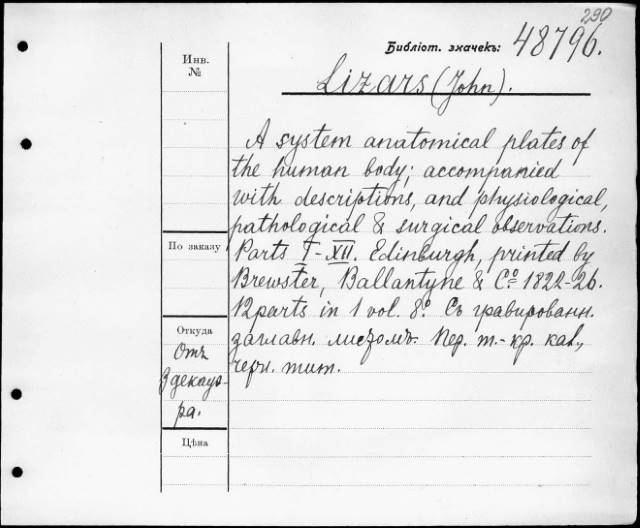 290
Библіот. значекъ: 48796.
Инв.
№
Lizars (John).
A system anatomical plates of
the human body; accompanied
with descriptions, and physiological,
pathological & surgical observations.
По заказу
Parts I-XII. Edinburgh, printed by
Brewster, Ballantyne & Cº 1822-26.
12 parts in 1 vol. 8º. Съ гравированн.
Откуда
заглавн. листомъ. Пер. т.-кр. кал.,
Отъ
черн. тит.
Цѣна